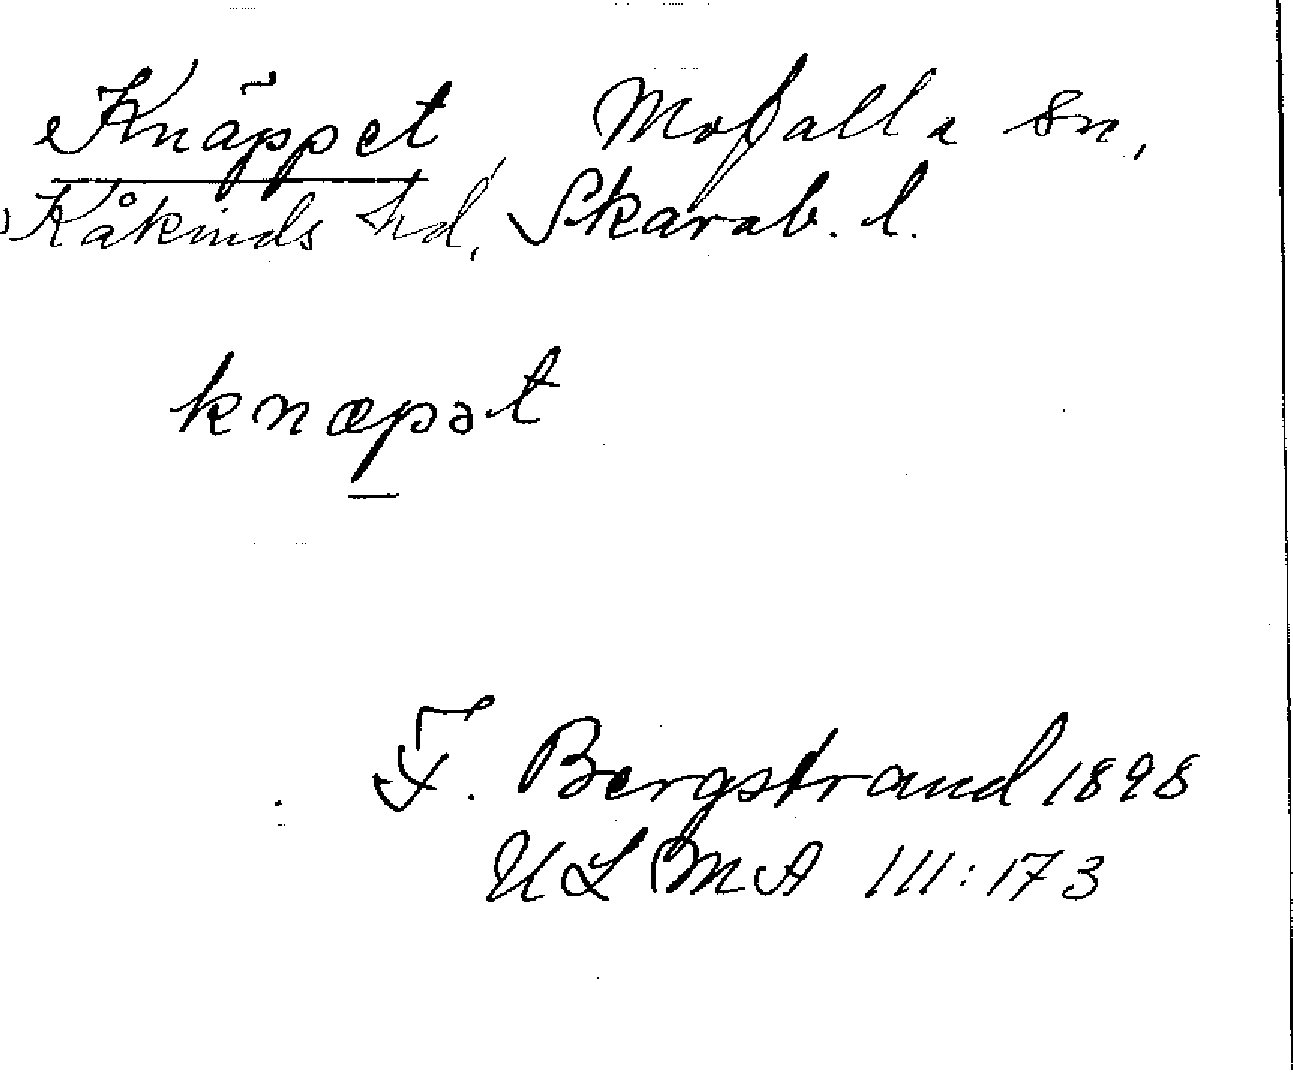 Knäppet, Mofalla sn,
Kåkinds hd, Skarab. l.
knæpət
F. Bergstrand 1898
ULMA 111:173